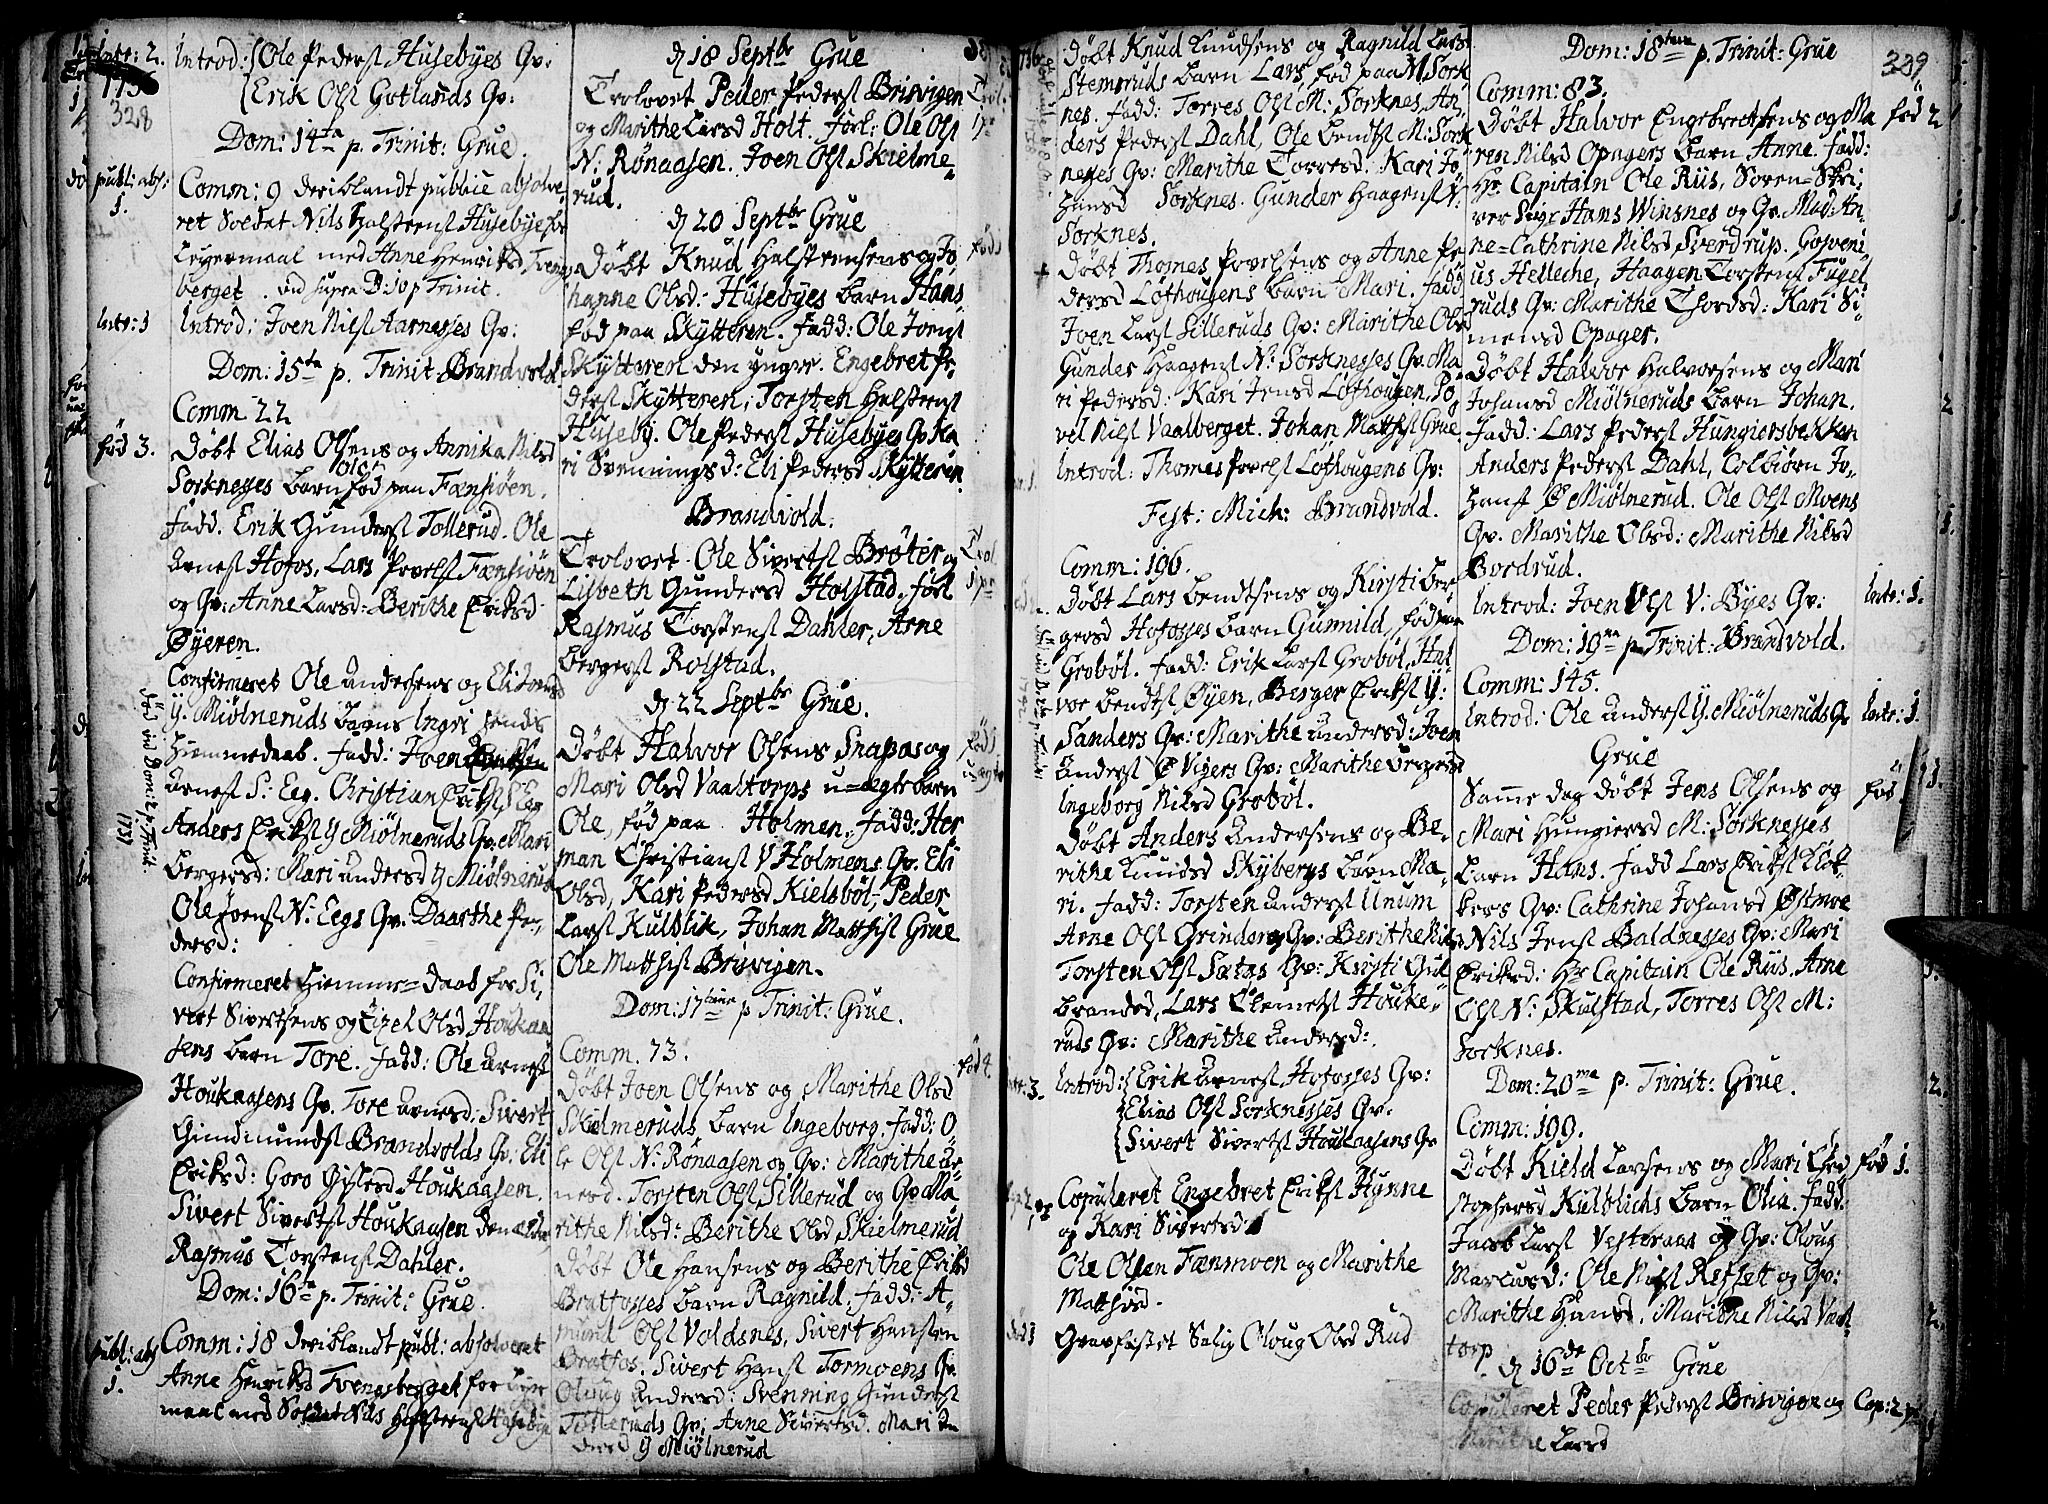 Intr: 2.
1736
328
Introd: Ole Pedersl Husebÿes Qv:
Erik Olsl Gotlands Qv:
Dom: 14ta p. Trinit: Grue
publ: abs: 1.
Comm: 9 deriblandt publice absolve-
ret Soldat Nils Halsteensl Husebÿe for
Leyermaal med Anne Henriksd Tvengs
berget. vid supra D: 10 p Trinit.
Intr: 1
Introd: Joen Nilsl Aarnesses Qv:
Dom: 15ta p. Trinit Brandvold.
Comm 22
fød 3.
Døbt Elias Olsens og Annika Nilsd
Sorknesses barn Ole fød paa Fænsiöen.
Fadd. Erik Gundersl Tollerud. Ole
Arnesl Hofos, Lars Povelsl Fænsiöen
og Qv: Anne Larsd: Berithe Eriksd
Øyeren.
Confirmeret Ole Andersens og Eli Joensd
Y. Miölneruds barns Ingri
Hiemmedaab. Fadd: Joen
Arnesl S: Eeg. Christian Eriksl S: Eeg
Anders Eriksl Y Miölneruds Qv: Mari
Bergersd: Mari Andersd Y Miölnerud
Ole Joensl N: Eegs Qv. Daarthe Pe-
dersd:
Confirmeret Hiemme-daab for Si-
vert Sivertsens og Eizel Olsd Houkaa
sens barn Tore. Fadd: Ole Arnesl
Houkaasens Qv. Tore Arnesd: Sivert
Gundmundsl Brandvolds Qv: Eli
Eriksd: Goro Gislesd Houkaasen.
Sivert Sivertsl Houkaasen den
Rasmus Torstensl Dahler.
Dom: 16ta p. Trinit: Grue.
publ: abs 1.
Comm: 18 deriblandt publ: absolveret
Anne Henriksd Tvengsberget for Leyer
maal med Soldat Nils Halsteensl Husebye
d 18 Septbr Grue
Trolovet Peder Pedersl Brisvigen
og Marithe Larsd Holt. Forl: Ole Olsl
N: Rønaasen. Joen Olsl Skielme-
rud.
d 20 Septbr Grue
Døbt Knud Halsteensens og Jo
hanne Olsd: Husebÿes barn Hans
fød paa Skÿtteren. Fadd: Ole Joensl
Skÿtteren den yngre. Engebret Pe-
dersl Skÿtteren, Torsten Halsteensl
Husebÿ. Ole Pedersl Husebÿes Qv. Ka
ri Svenningsd: Eli Pedersd Skÿtteren
Brandvold.
Trolovet Ole Sivertsl Brøter og
Lisbeth Gundersd Holstad. Forl
Rasmus Torstensl Dahler, Arne
Bergersl Rolstad.
d 22 Septbr Grue.
Døbt Halvor Olsens Snapas og
Mari Olsd Vaaltorps u=ægte barn
Ole, fød paa Holmen. Fadd: Her
man Christiansl V Holmens Qv. Eli
Olsd, Kari Pedersd Kielsböl, Peder
Larsl Kulblik, Johan Matthisl Grue
Ole Matthisl Brisvigen.
Dom: 17tima p Trinit: Grue.
Comm. 73.
fød 4.
Døbt Joen Olsens og Marithe Olsd
Skielmeruds barn Ingeborg. Fadd: O
le Olsl N: Rønaasen og Qv: Marithe Ar-
nesd. Torsten Olsl Sillerud og Qv Ma
rithe Nilsd: Berithe Olsd Skielmerud
Døbt Ole Hansens og Berithe Eriksd
Bratfosses barn Ragnild. Fadd: A-
mund Olsl Voldsnes, Sivert Hansten
Bratfos. Sivert Hansl Tormoens Qv
Oloug Andersd: Svenning Gundersl
Tilleruds Qv: Anne Sivertsd. Mari An
dersd Y Miölnerud
1736
Døbt Knud Knudsens og Ragnild Larsd
Stemsruds barn Lars, fød paa M Sork
nes. Fadd: Torres Olsl M: Sorknes, An-
ders Pedersl Dahl, Ole Bendtsl M: Sork
nesses Qv: Marithe Torresd: Kari Jo-
hansd Sorknes. Gunder Haagensl N:
Sorknes.
Døbt Thomes Povelsens og Anne Pe
dersd Löthougens barn Mari. Fadd
Joen Larsl Silleruds Qv: Marithe Olsd
Gunder Haagensl N: Sorknesses Qv. Ma
ri Pedersd: Kari Jensd Löthougen, Po
vel Nilsl Vaalberget. Johan Matthisl Grue
Introd: Thomes Povelsl Löthougens Qv:
Fest: Mich: Brandvold.
Comm: 196.
Døbt Lars Bendtsens og Kirsti Ber-
gersd Hofosses barn Gunnild, fød paa
Grobøl. Fadd: Erik Larsl Grobøl, Hal
vor Bendtsl Øyen, Berger Eriksl Y:
Sanders Qv: Marithe Andersd: Joen
Andersl Ø Vigers Qv: Marithe Bergersd
Ingeborg Nilsd Grobøl.
Døbt Anders Andersens og Be-
rithe Knudsd Skÿbergs barn Ma-
ri. Fadd: Torsten Andersl Unum
Arne Olsl Grinder og Qv: Berithe Nils
Torsten Olsl Sætas Qv: Kirsti Gul
brandsd, Lars Clemetsl Houke-
ruds Qv: Marithe Andersd:.
Introd: Erik Arnesl Hofosses Qv:
Elias Olsl Sorknesses Qv.
Sivert Sivertsl Houkaasens Qv
Copuleret Engebret Eriksl Hÿnne
og Kari Sivertsd
Ole Olsen Fænmoen og Marithe
Matthisd.
Gravfæstet Salig Oloug Olsd Rud
Dom: 18tena p. Trinit: Grue
339
Comm: 83.
fød 2
Døbt Halvor Engebretsens og Ma
ren Nilsd Opagers barn Anne. Fadd:
Hr Capitain Ole Riis, Soren=Skri-
ver Sigr Hans Winsnes og Qv. Mad: An-
ne=Cathrine Nilsd Sverdrup. Gosveni
us Helleche, Haagen Torstensl Fugel
ruds Qv: Marithe Thordsd: Kari Si-
mensd Opager.
Døbt Halvor Halvorsens og Mari
Johansd Miölneruds barn Johan.
Fadd: Lars Pedersl Hungiersbekken
Anders Pedersl Dahl, Colbiørn Jo-
hansl Ø Miölnerud. Ole Olsl Moens
Qv. Marithe Olsd: Marithe Nilsd
Bordrud.
Introd: Joen Olsl V: Bÿes Qv:
Intr: 1.
Dom: 19na p Trinit: Brandvold.
Comm: 145.
Introd: Ole Andersl Y. Miölneruds Qv
Intr: 1.
Grue
Samme dag døbt Jens Olsens og
Mari Hungiersd M: Sorknesses
barn Hans. Fadd Lars Eriksl Klok-
kers Qv: Cathrine Johansd Østmoe
Nils Jensl Baldnesses Qv: Mari
Eriksd: Hr Capitain Ole Riis, Arne
Olsl N: Skulstad, Torres Olsl M:
Sorknes.
Dom: 20ma p. Trinit: Grue.
Comm: 199.
Døbt Kield Larsens og Mari Chri
fød 1.
stophersd Kulblichs barn Olia. Fadd:
Jacob Larsl Vesteraas og Qv: Oloug
Marcusd: Ole Nilsl Refset og Qv:
Marithe Hansd. Marithe Nilsd Vaal
torp
d 16de Octbr Grue
Copuleret Peder Pedersl Brisvigen og
Cop: 2 p
Marithe Larsd